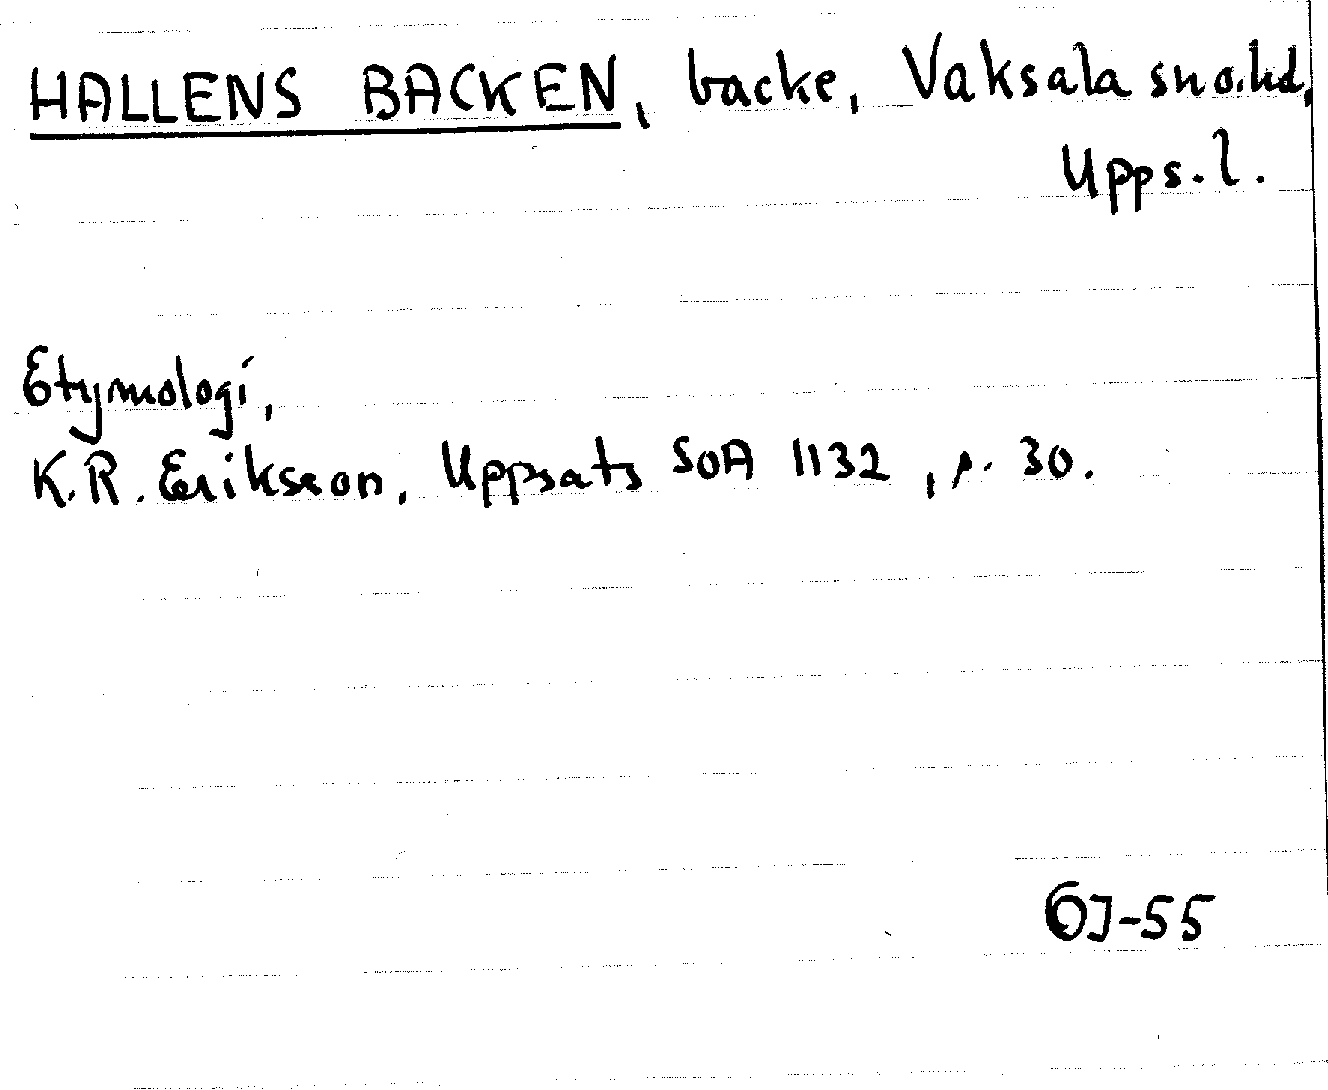 HALLENS BACKEN, backe, Vaksala sn o. hd,
Upps. l.
Etymologi,
K.R. Erikson, Uppsats SOA 1132, s. 30.
-55